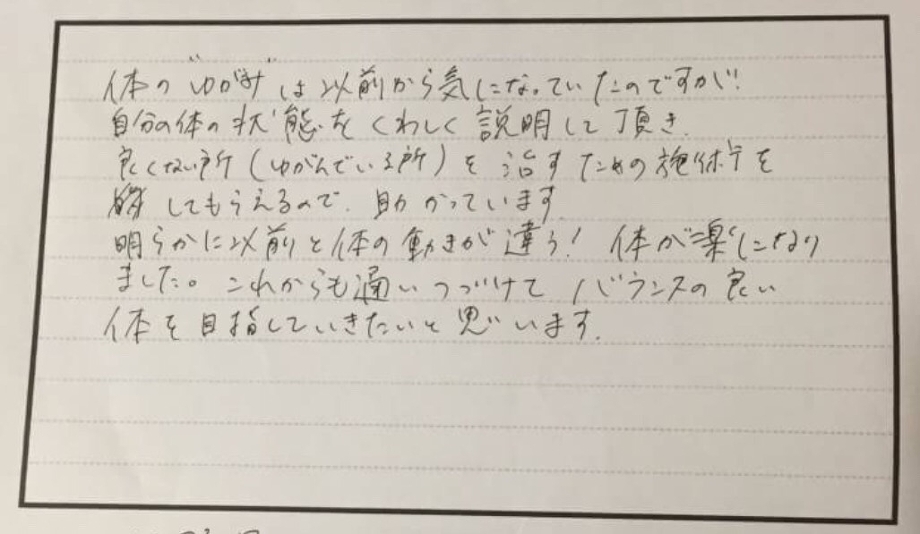 体の"ゆがみ"は以前から気になっていたのですが!
自分の体の状態をくわしく説明して頂き、
良くない所(ゆがんでいる所)を治すための施術を
してもらえるので、助かっています。
明らかに以前と体の動きが違う! 体が楽になり
ました。これからも通いつづけてバランスの良い
体を目指していきたいと思います。